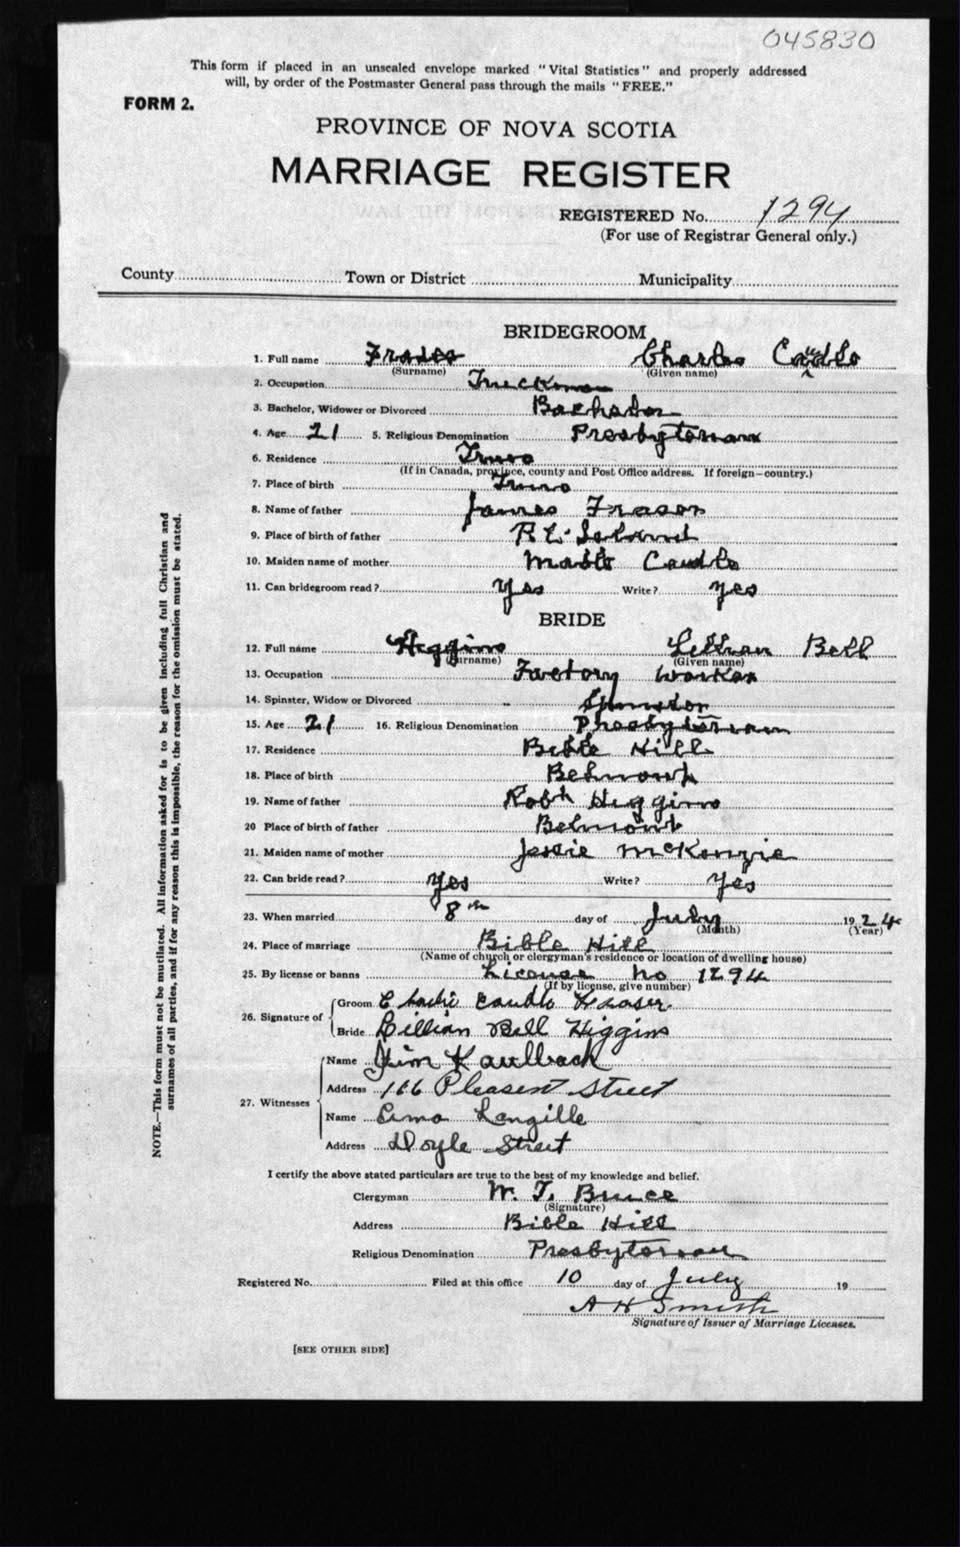 045830
This form if placed in an unsealed envelope marked "Vital Statistics" and properly addressed
will, by order of the Postmaster General pass through the mails "FREE."
FORM 2.
PROVINCE OF NOVA SCOTIA
MARRIAGE REGISTER
REGISTERED No. 1294
(For use of Registrar General only.)
County Town or District Municipality
BRIDEGROOM
1. Full name Charles Caudle
(Surname) (Given name)
2. Occupation Truckman
3. Bachelor, Widower or Divorced Bachelor
4. Age 21 5. Religious Denomination Presbyterian
6. Residence Truro
(If in Canada, province, county and Post Office address. If foreign—country.)
7. Place of birth Truro
8. Name of father James Fraser
9. Place of birth of father P. E. Island
10. Maiden name of mother Caudle
11. Can bridegroom read? Yes Write? yes
BRIDE
12. Full name Higgins Lillian Bell
(Surname) (Given name)
13. Occupation Factory Worker
14. Spinster, Widow or Divorced Spinster
15. Age 21 16. Religious Denomination Presbyterian
17. Residence Bible Hill
18. Place of birth Belmont
19. Name of father Robt Higgins
20 Place of birth of father Belmont
21. Maiden name of mother Jessie McKenzie
22. Can bride read? Yes Write? Yes
23. When married 8th day of July 1924
(Month) (Year)
24. Place of marriage Bible Hill
(Name of church or clergyman's residence or location of dwelling house)
25. By license or banns License No 1294
(If by license, give number)
26. Signature of Groom Charlie Caudle Fraser
Bride Lillian Bell Higgins
27. Witnesses Name Jim Kaulback
Address 166 Pleasent Street
Name Langille
Address Doyle Street
I certify the above stated particulars are true to the best of my knowledge and belief.
Clergyman W. T. Bruce
(Signature)
Address Bible Hill
Religious Denomination Presbyterian
Registered No. Filed at this office 10 day of July 19
A H Smith
Signature of Issuer of Marriage Licenses.
[SEE OTHER SIDE]
NOTE.—This form must not be mutilated. All information asked for is to be given including full Christian and
surnames of all parties, and if for any reason this is impossible, the reason for the omission must be stated.